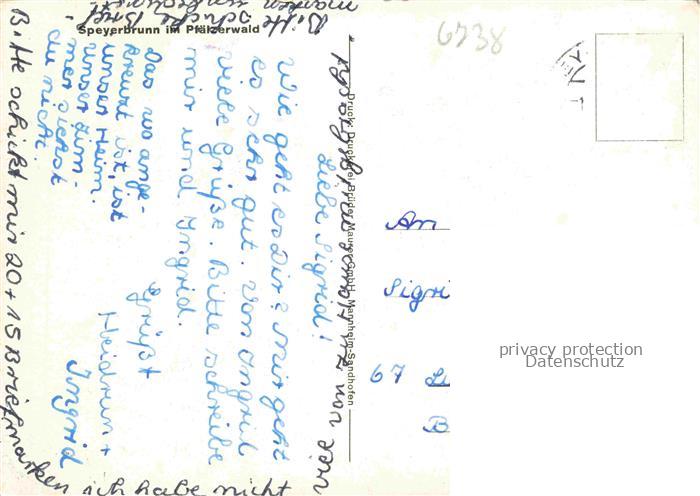 Speyerbrunn im Pfälzerwald
6738
Liebe Sigrid!
Wie geht es Dir? Mir geht
es sehr gut. Von Ingrid
viele Grüße. Bitte schreibe
mir und Ingrid.
Das wo ange-
kreuzt ist, ist
unser Heim.
unser Zim-
mer siehst
du nicht.
Grüßt
Heidrun +
Ingrid
Bitte schickt mir 20 + 15 Briefmarken ich habe nicht
viel von
Bitte schicke Brief-
marken
Druck: Druckerei Brüder Maurer GmbH, Mannheim-Sandhofen
An
Sigri
67 Lu
B
privacy protection
Datenschutz